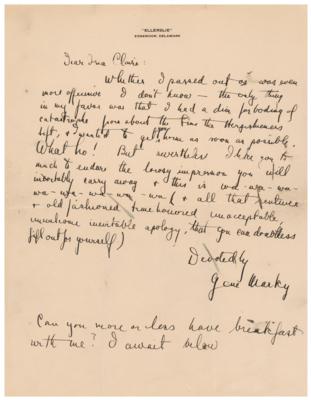 "ELLERSLIE"
EDGEMOOR, DELAWARE
Dear Ina Claire:
Whether I passed out or was even
more offensive I don't know — the only thing
in my favor was that I had a dim forboding of
catastrophe from about the time the Hergesheimers
left, & wanted to get home as soon as possible.
What ho! But nevertheless I like you to
much to endure the lousy impression you will
inevitably carry away & this is wa-wa-wa-
wa-wa-wa-wa-wa-wa & all that sentimental
& old fashioned time honoured, unacceptable,
inevitable apology, that you can doubtless
fill out for yourself)
Devotedly
Gene Markey
Can you more or less have breakfast
with me? I await below